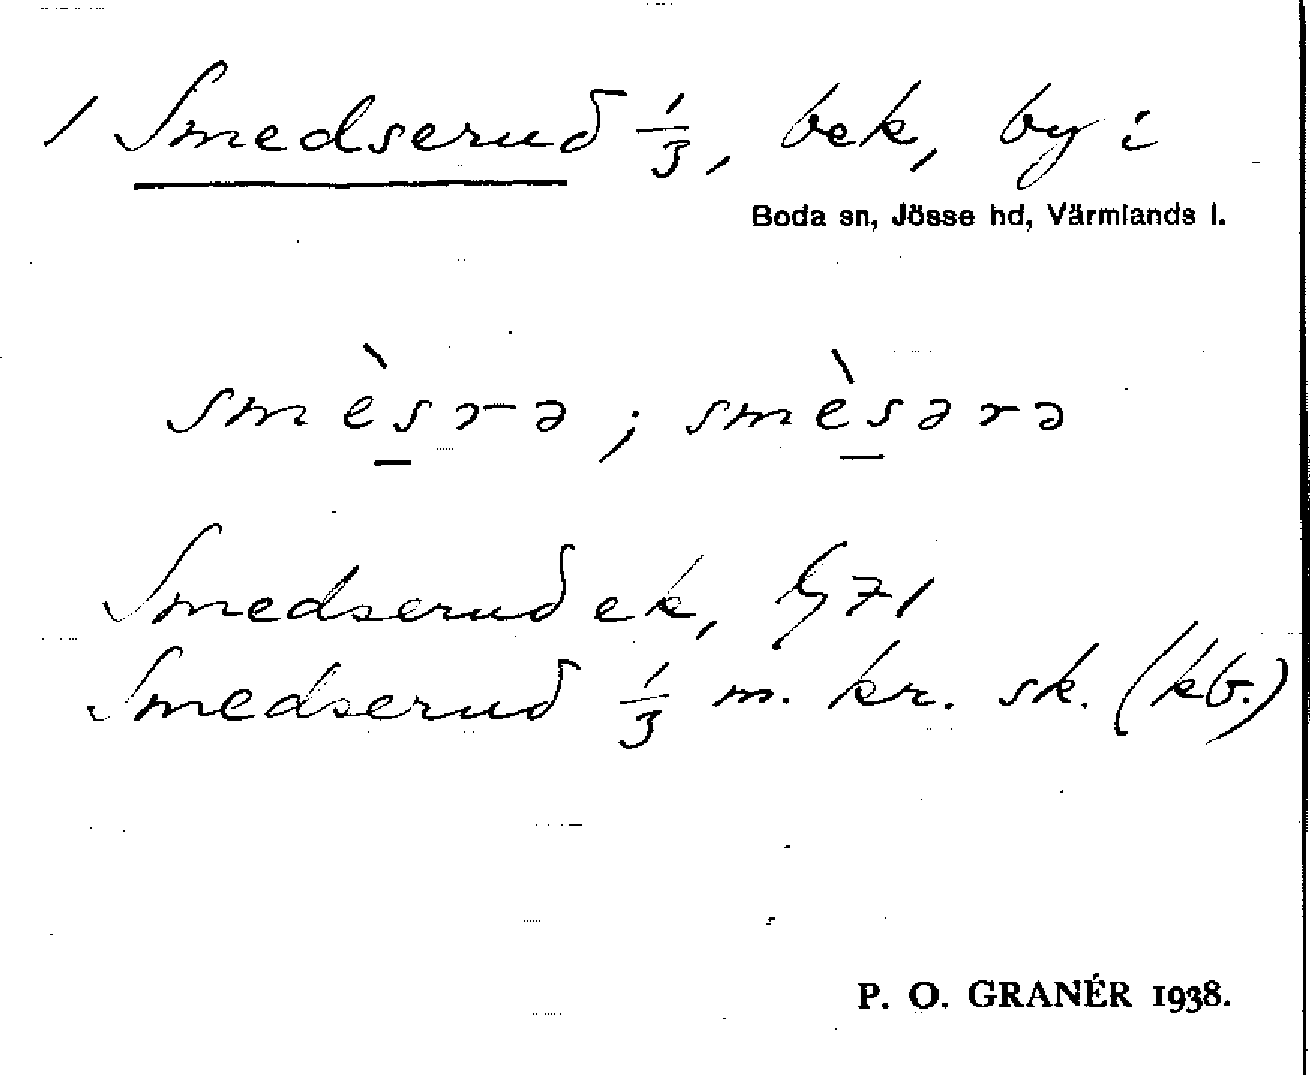 1 Smedserud 1/3, bek, by i
Boda sn, Jösse hd, Värmlands l.
smèsrə ; smèsərə
Smedserud ek, G 71
Smedserud 1/3 m. kr. sk. (kb.)
P. O. GRANÉR 1938.